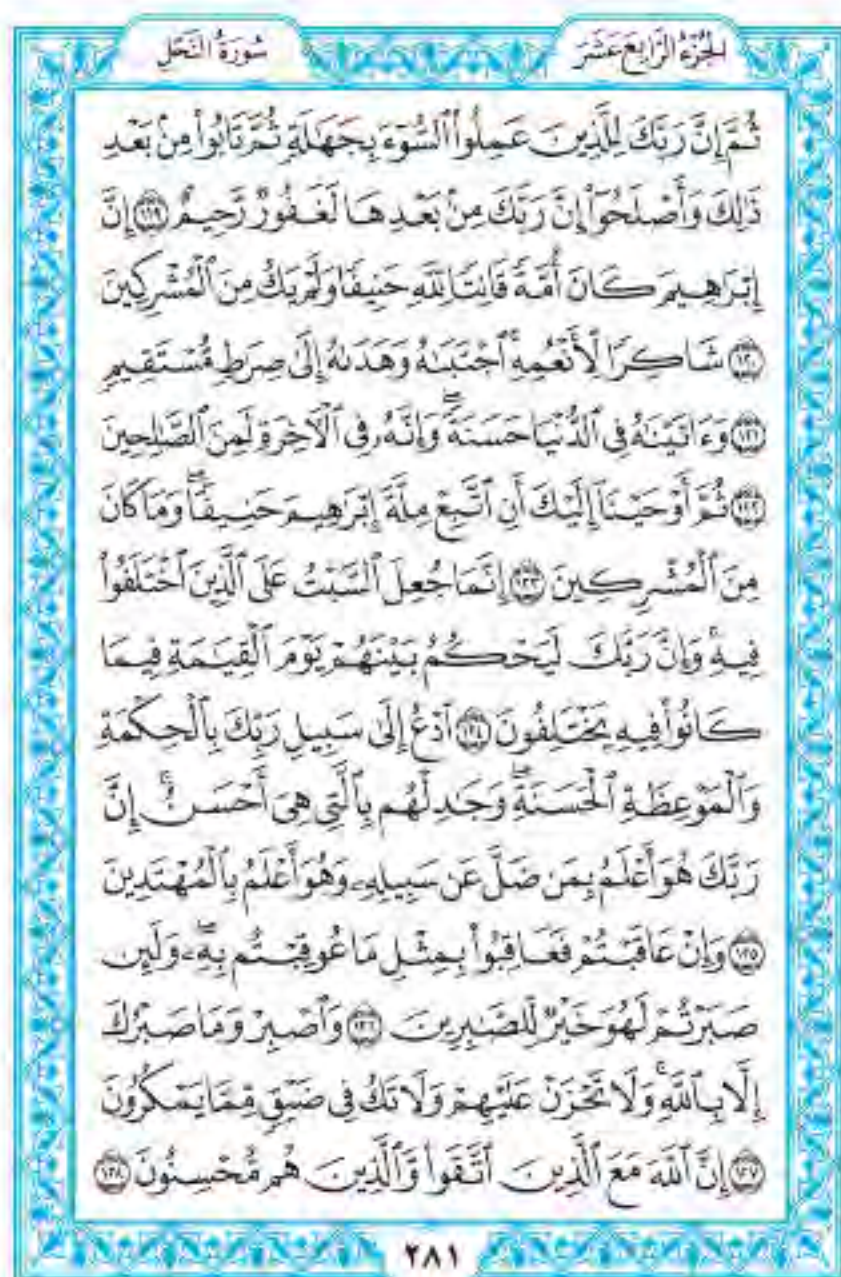 الجُزْءُ الرَّابِعَ عَشَرَ
سُورَةُ النَّحْلِ
ثُمَّ إِنَّ رَبَّكَ لِلَّذِينَ عَمِلُوا۟ ٱلسُّوٓءَ بِجَهَٰلَةٍ ثُمَّ تَابُوا۟ مِنۢ بَعْدِ
ذَٰلِكَ وَأَصْلَحُوٓا۟ إِنَّ رَبَّكَ مِنۢ بَعْدِهَا لَغَفُورٌ رَّحِيمٌ ١١٩ إِنَّ
إِبْرَٰهِيمَ كَانَ أُمَّةً قَانِتًا لِّلَّهِ حَنِيفًا وَلَمْ يَكُ مِنَ ٱلْمُشْرِكِينَ
١٢٠ شَاكِرًا لِّأَنْعُمِهِ ٱجْتَبَىٰهُ وَهَدَىٰهُ إِلَىٰ صِرَٰطٍ مُّسْتَقِيمٍ
١٢١ وَءَاتَيْنَٰهُ فِى ٱلدُّنْيَا حَسَنَةً ۖ وَإِنَّهُۥ فِى ٱلْءَاخِرَةِ لَمِنَ ٱلصَّٰلِحِينَ
١٢٢ ثُمَّ أَوْحَيْنَآ إِلَيْكَ أَنِ ٱتَّبِعْ مِلَّةَ إِبْرَٰهِيمَ حَنِيفًا ۖ وَمَا كَانَ
مِنَ ٱلْمُشْرِكِينَ ١٢٣ إِنَّمَا جُعِلَ ٱلسَّبْتُ عَلَى ٱلَّذِينَ ٱخْتَلَفُوا۟
فِيهِ ۚ وَإِنَّ رَبَّكَ لَيَحْكُمُ بَيْنَهُمْ يَوْمَ ٱلْقِيَٰمَةِ فِيمَا
كَانُوا۟ فِيهِ يَخْتَلِفُونَ ١٢٤ ٱدْعُ إِلَىٰ سَبِيلِ رَبِّكَ بِٱلْحِكْمَةِ
وَٱلْمَوْعِظَةِ ٱلْحَسَنَةِ ۖ وَجَٰدِلْهُم بِٱلَّتِى هِىَ أَحْسَنُ ۚ إِنَّ
رَبَّكَ هُوَ أَعْلَمُ بِمَن ضَلَّ عَن سَبِيلِهِۦ وَهُوَ أَعْلَمُ بِٱلْمُهْتَدِينَ
١٢٥ وَإِنْ عَاقَبْتُمْ فَعَاقِبُوا۟ بِمِثْلِ مَا عُوقِبْتُم بِهِۦ ۖ وَلَئِن
صَبَرْتُمْ لَهُوَ خَيْرٌ لِّلصَّٰبِرِينَ ١٢٦ وَٱصْبِرْ وَمَا صَبْرُكَ
إِلَّا بِٱللَّهِ ۚ وَلَا تَحْزَنْ عَلَيْهِمْ وَلَا تَكُ فِى ضَيْقٍ مِّمَّا يَمْكُرُونَ
١٢٧ إِنَّ ٱللَّهَ مَعَ ٱلَّذِينَ ٱتَّقَوا۟ وَّٱلَّذِينَ هُم مُّحْسِنُونَ ١٢٨
٢٨١